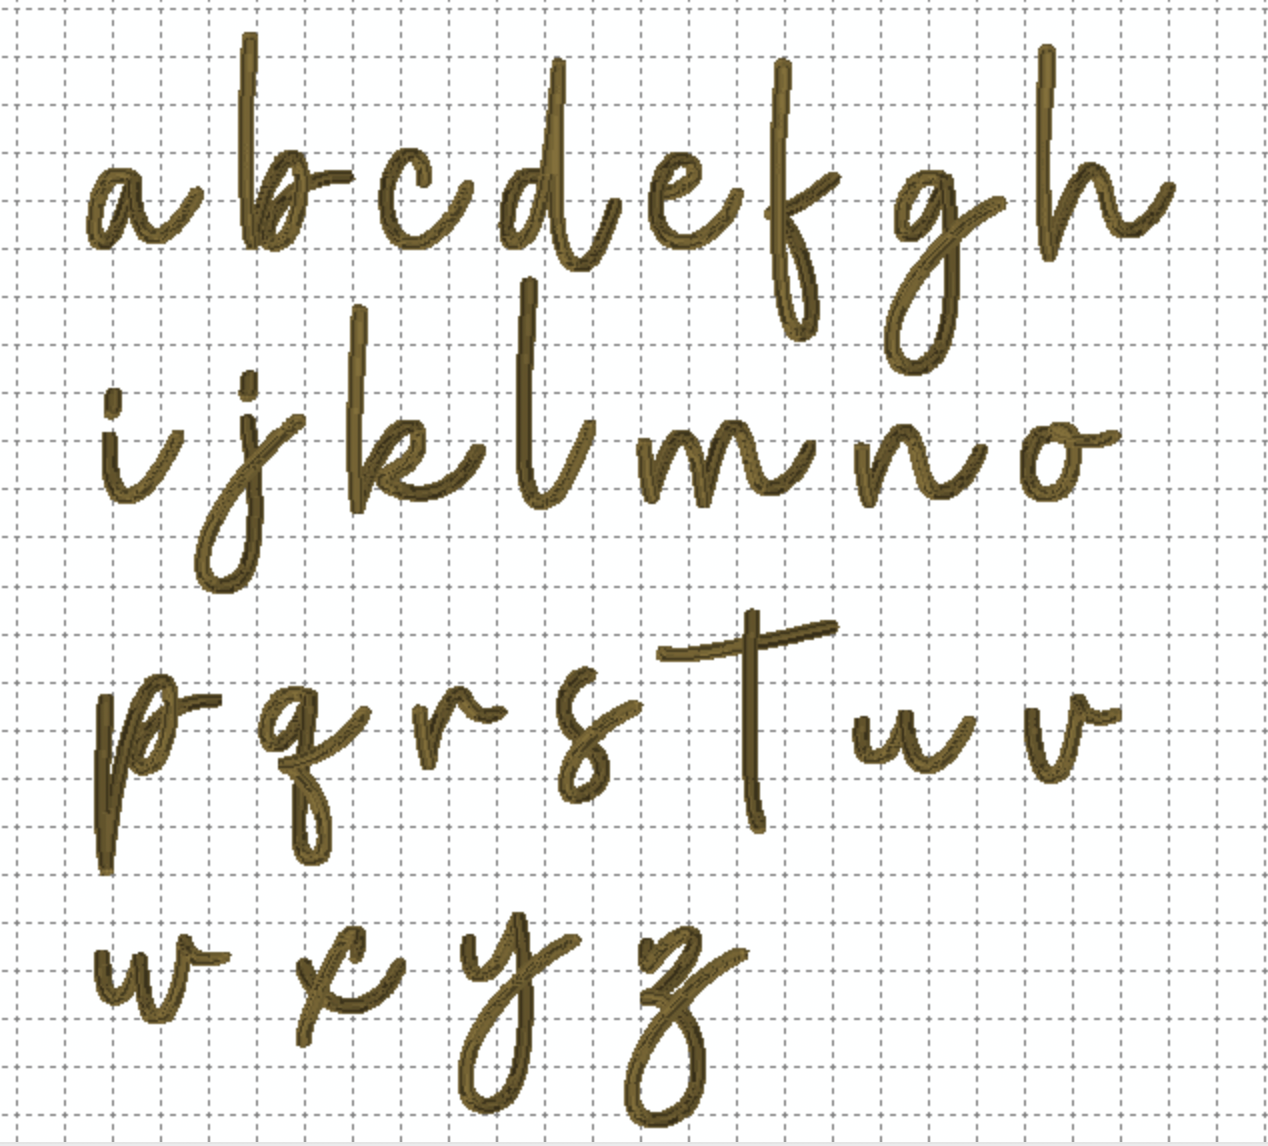 a b c d e f g h
i j k l m n o
p q r s T u v
w x y z